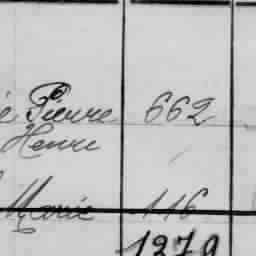 é Pierre 662
Henri
Marie 116
1279